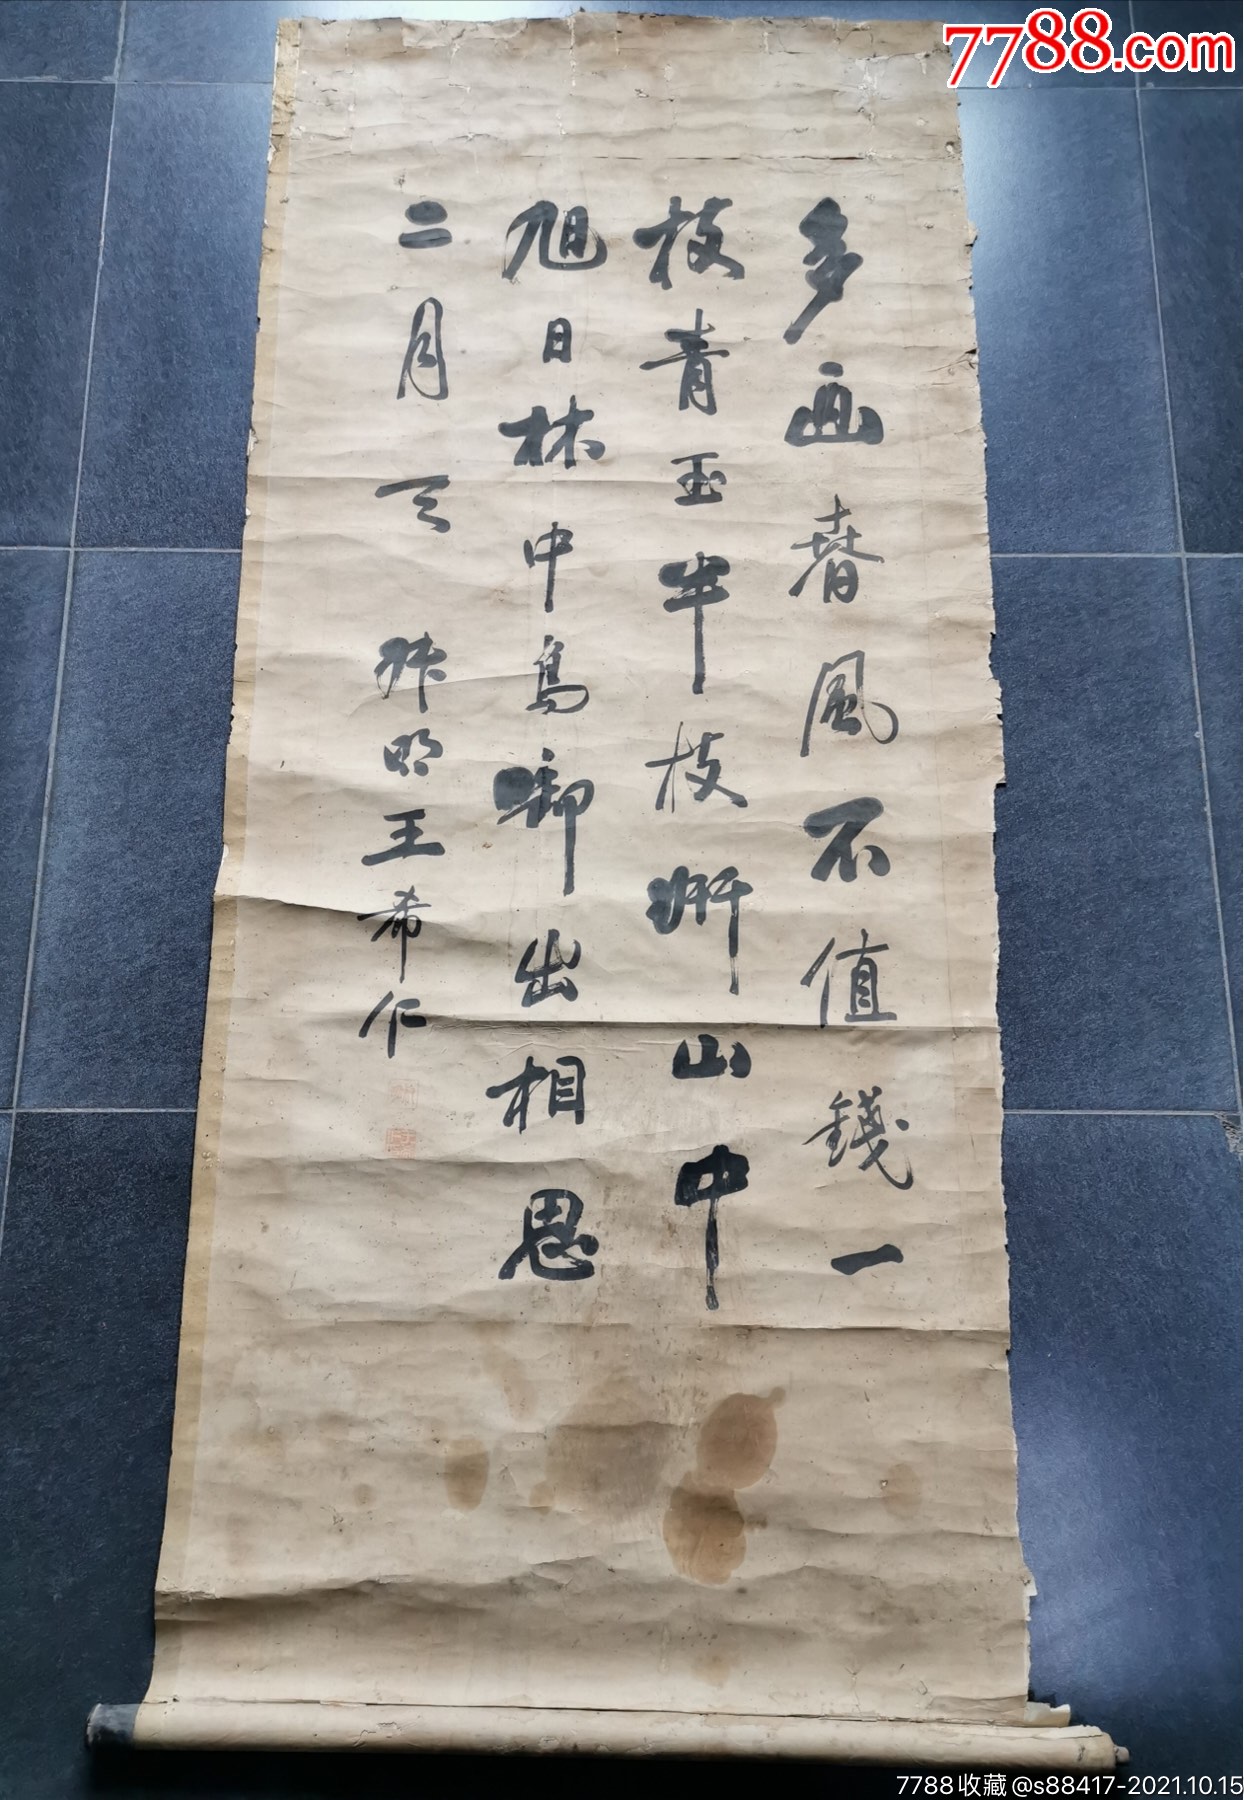 多画春風不值錢一
枝青玉半枝妍山中
旭日林中鳥啣出相思
二月天 明王希仁
7788.com
7788收藏@s88417-2021.10.15